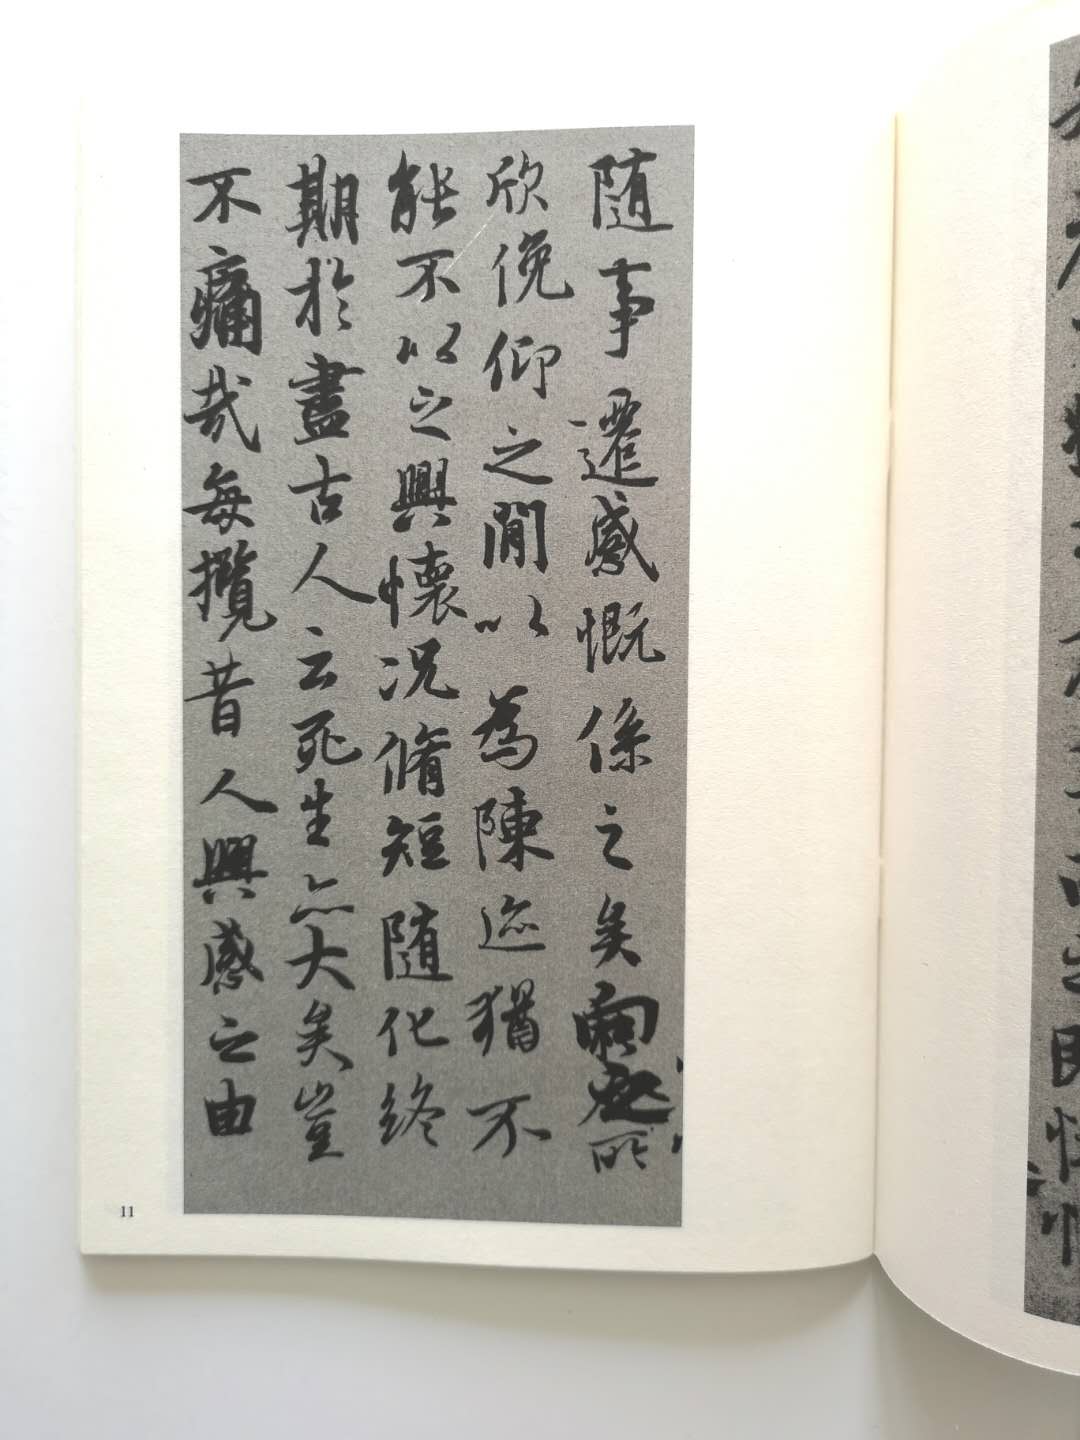 隨事遷感慨係之矣向之所
欣俛仰之閒以為陳迹猶不
能不以之興懷況脩短隨化終
期於盡古人云死生亦大矣豈
不痛哉每攬昔人興感之由
11